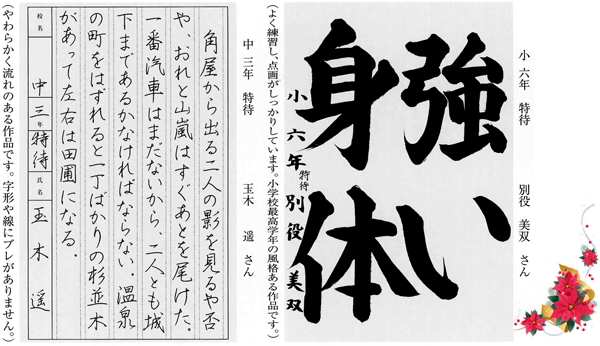 小 六年 特待 別役 美双 さん
強い
身体
小六年 特待 別役 美双
（よく練習し、点画がしっかりしています。小学校最高学年の風格ある作品です。）
中 三年 特待 玉木 遥 さん
角屋から出る二人の影を見るや否
や、おれと山嵐はすぐあとを尾けた。
一番汽車はまだないから、二人とも城
下まであるかなければならない。温泉
の町をはずれると一丁ばかりの杉並木
があって左右は田圃になる。
校名 中 三年 特待 氏名 玉木 遥
（やわらかく流れのある作品です。字形や線にブレがありません。）